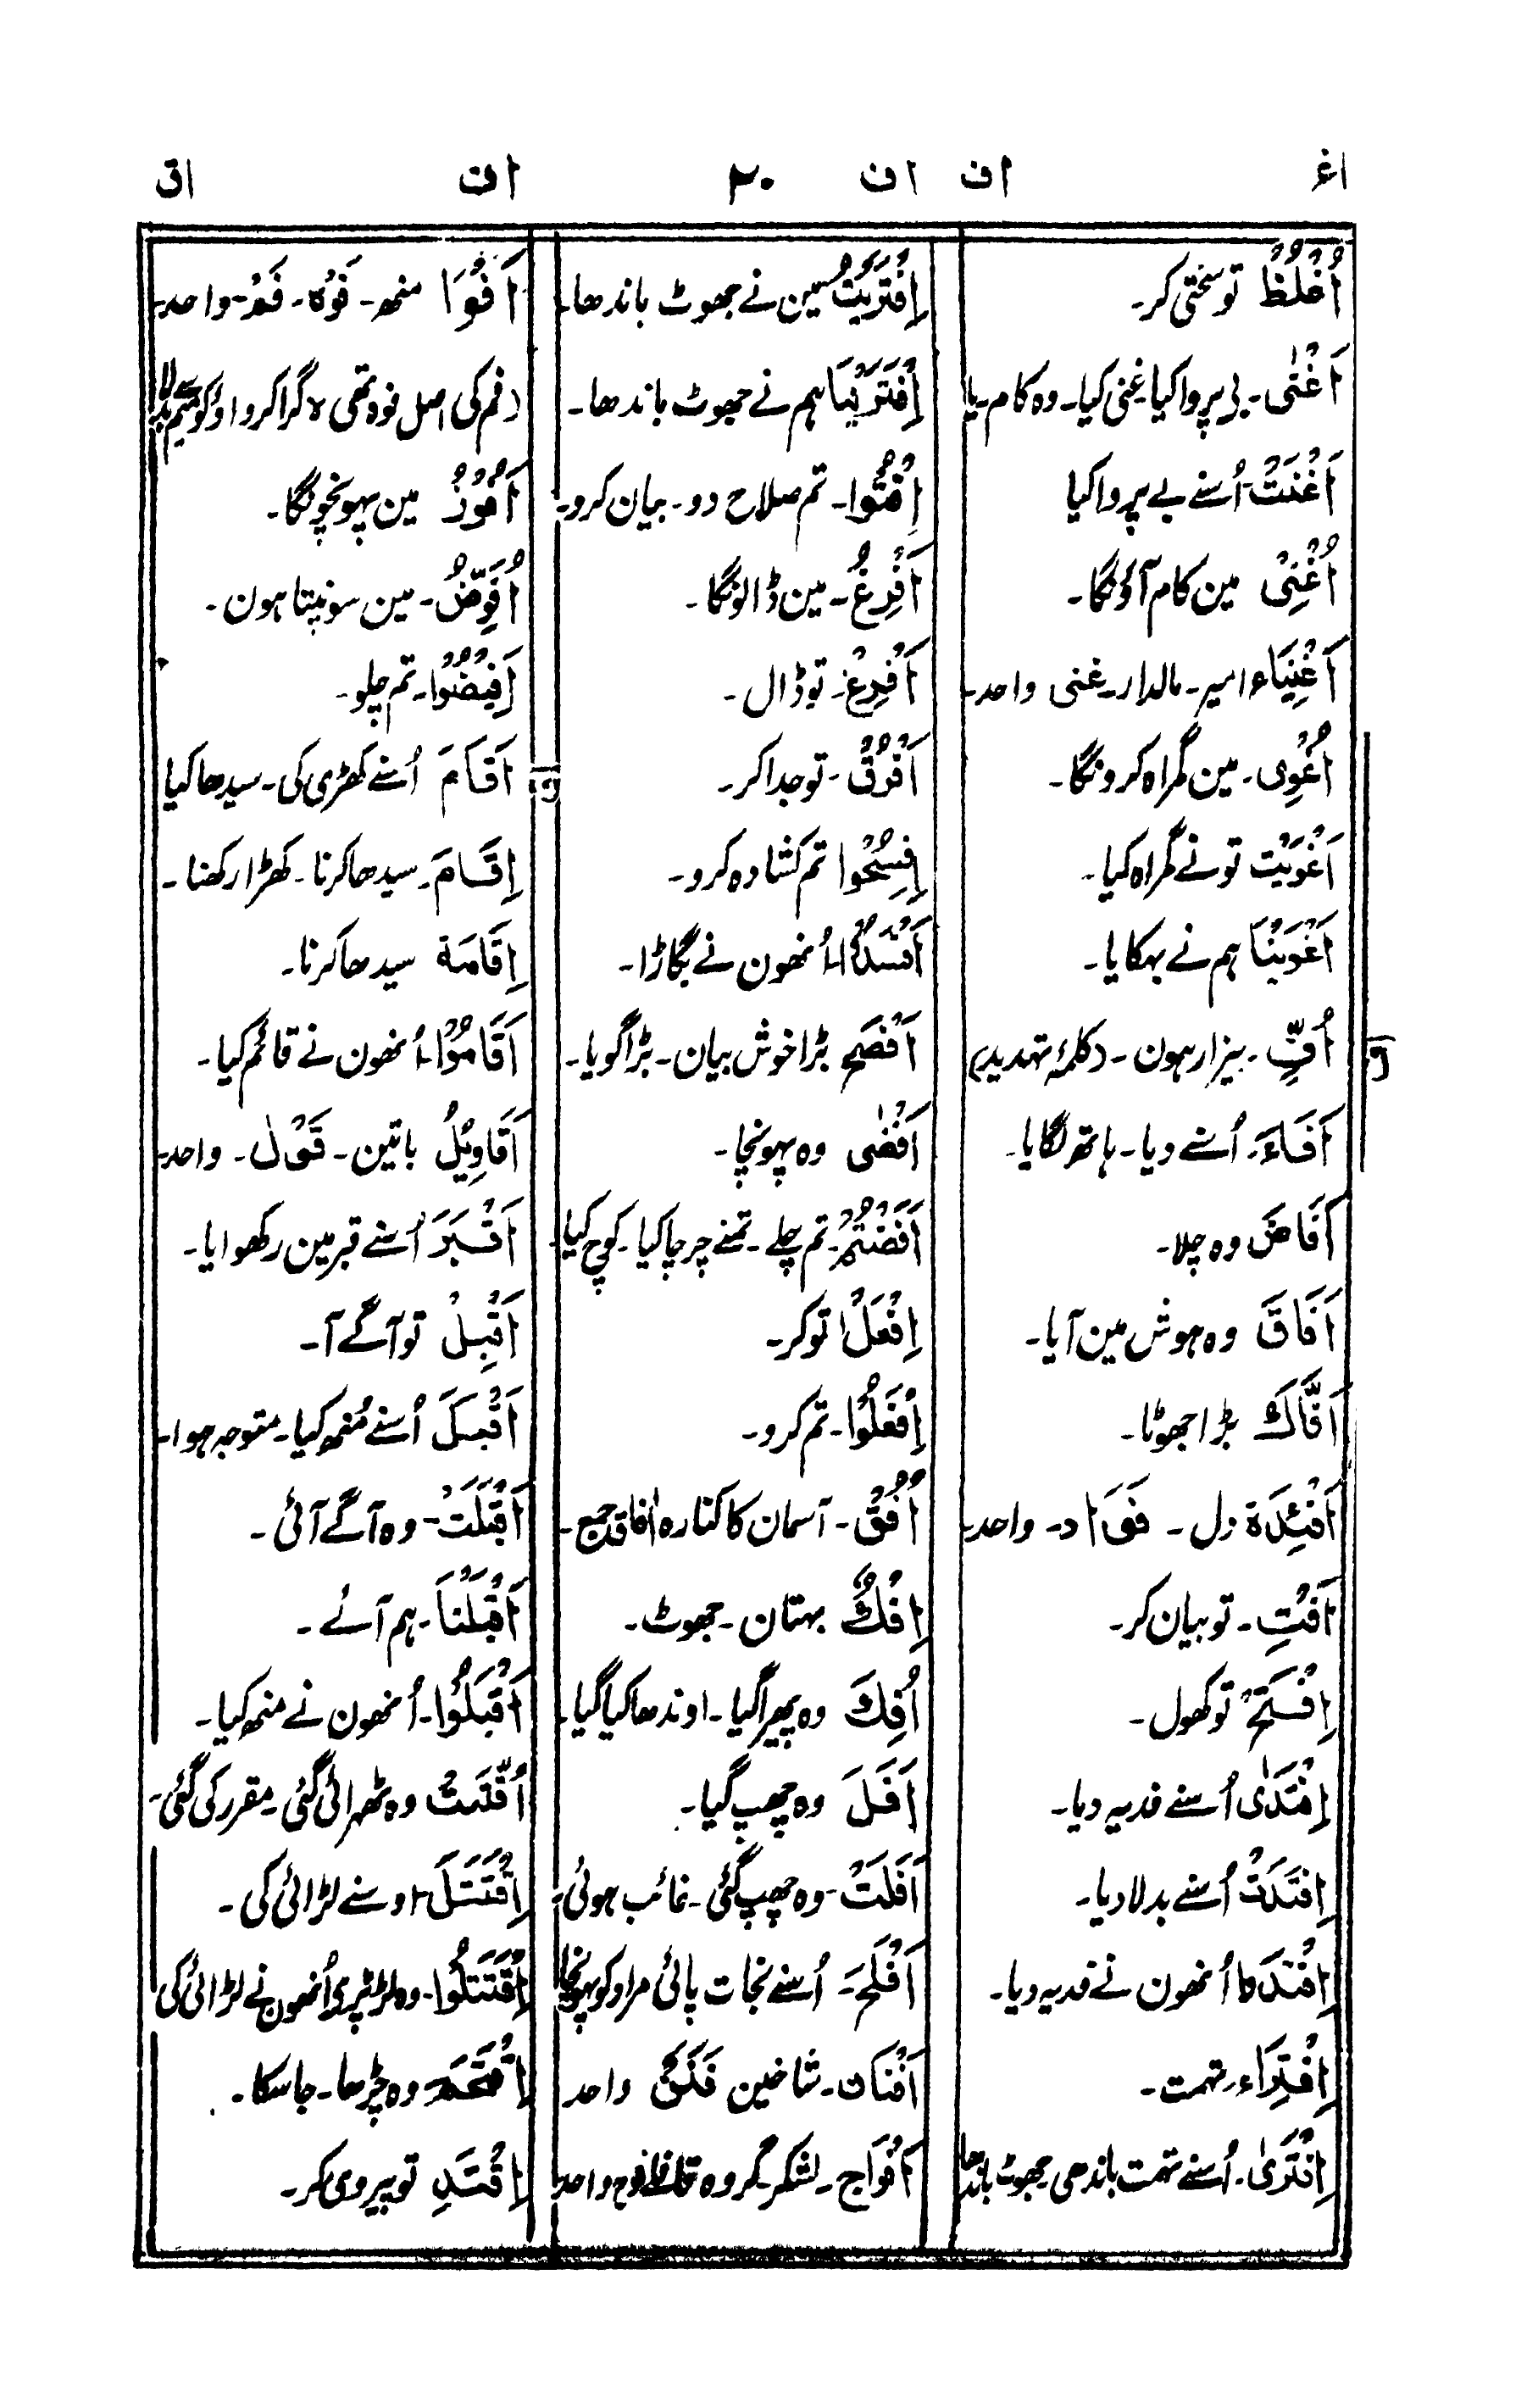 اغ
اف
اف
۲۰
اف
اق
اُغْلُظْ تو سختی کر۔
اَغْنٰی۔ بی پروا کیا۔ غنی کیا۔ وہ کام۔ یا
اَغْنَتْ۔ اُسنے بے پروا کیا
اُغْنِیْ مین کام آؤنگا۔
اَغْنِیَاء امیر۔ مالدار۔ غنی واحد۔
اُغْوِی۔ مین گمراہ کرونگا۔
اَغْوَیْتَ تو نے گمراہ کیا۔
اَغْوَیْنَا ہم نے بہکایا۔
اف
اُفٍّ۔ بیزار ہون۔ (کلمۂ تہدید)
اَفَاءَ۔ اُسنے دیا۔ ہاتھ لگایا۔
اَفَاضَ وہ چلا۔
اَفَاقَ وہ ہوش مین آیا۔
اَفَّاكْ بڑا جھوٹا۔
اَفْئِدَة دل۔ فَوَاد۔ واحد۔
اَفْتِ۔ تو بیان کر۔
اِفْتَحْ تو کھول۔
اِفْتَدٰی اُسنے فدیہ دیا۔
اِفْتَدَتْ اُسنے بدلا دیا۔
اِفْتَدَوْا اُنھون نے فدیہ دیا۔
اِفْتِرَاء۔ تہمت۔
اِفْتَرٰی۔ اُسنے تہمت باندھی جھوٹ باندھا
اِفْتَرَیْتُ مین نے جھوٹ باندھا۔
اِفْتَرَیْنَا ہم نے جھوٹ باندھا۔
اِفْتُوْا۔ تم صلاح دو۔ بیان کرو۔
اَفْرِغُ۔ مین ڈالونگا۔
اَفْرِغْ۔ تو ڈال۔
اَفْرُقْ۔ تو جدا کر۔
اِفْسِحُوْا تم کشادہ کرو۔
اَفْسَدُوْا۔ اُنھون نے بگاڑا۔
اَفْصَح بڑا خوش بیان۔ بڑا گویا۔
اَفْضٰی وہ پہونچا۔
اَفَضْتُمْ۔ تم چلے۔ تمنے چرچا کیا۔ کوچ کیا۔
اِفْعَلْ تو کر۔
اِفْعَلُوْا۔ تم کرو۔
اُفُقْ۔ آسمان کا کنارہ اٰفاق جمع۔
اِفْكٌ بہتان۔ جھوٹ۔
اُفِكَ وہ پھیرا گیا۔ اوندھا کیا گیا۔
اَفَلَ وہ چھپ گیا۔
اَفَلَتْ۔ وہ چھپ گئی۔ غائب ہوئی۔
اَفْلَحَ۔ اُسنے نجات پائی مراد کو پہونچا
اَفْنَان۔ شاخین فَنَنْ واحد
اَفْوَاج۔ لشکر۔ گروہ فوج واحد
اَفْوَا منھ۔ فَوْہ۔ فَمْ۔ واحد۔
(فم کی اصل فوہ تھی لا گرا کر واؤ کو میم سے بدلا
اَفُوْزُ مین پہونچونگا۔
اُفَوِّضُ۔ مین سونپتا ہون۔
اَفِیْضُوْا۔ تم چلو۔
اق
اَقَامَ اُسنے کھڑی کی۔ سیدھا کیا
اِقَامَ۔ سیدھا کرنا۔ کھڑا رکھنا۔
اِقَامَة سیدھا کرنا۔
اَقَامُوْا۔ اُنھون نے قائم کیا۔
اَقَاوِیْلُ باتین۔ قَوْل۔ واحد۔
اَقْبَرَ اُسنے قبر مین رکھوایا۔
اَقْبِلْ تو آگے آ۔
اَقْبَلَ اُسنے مُنھ کیا۔ متوجہ ہوا۔
اَقْبَلَتْ۔ وہ آگے آئی۔
اَقْبَلْنَا۔ ہم آئے۔
اَقْبَلُوْا۔ اُنھون نے منھ کیا۔
اُقِّتَتْ وہ ٹھرائی گئی۔ مقرر کی گئی۔
اِقْتَتَلَ۔ اوسنے لڑائی کی۔
اِقْتَتَلُوْا۔ وہ لڑ پڑے اُنھون نے لڑائی کی
اِقْتَحَمَ۔ وہ چڑھا۔ جا سکا۔
اِقْتَدِ تو پیروی کر۔